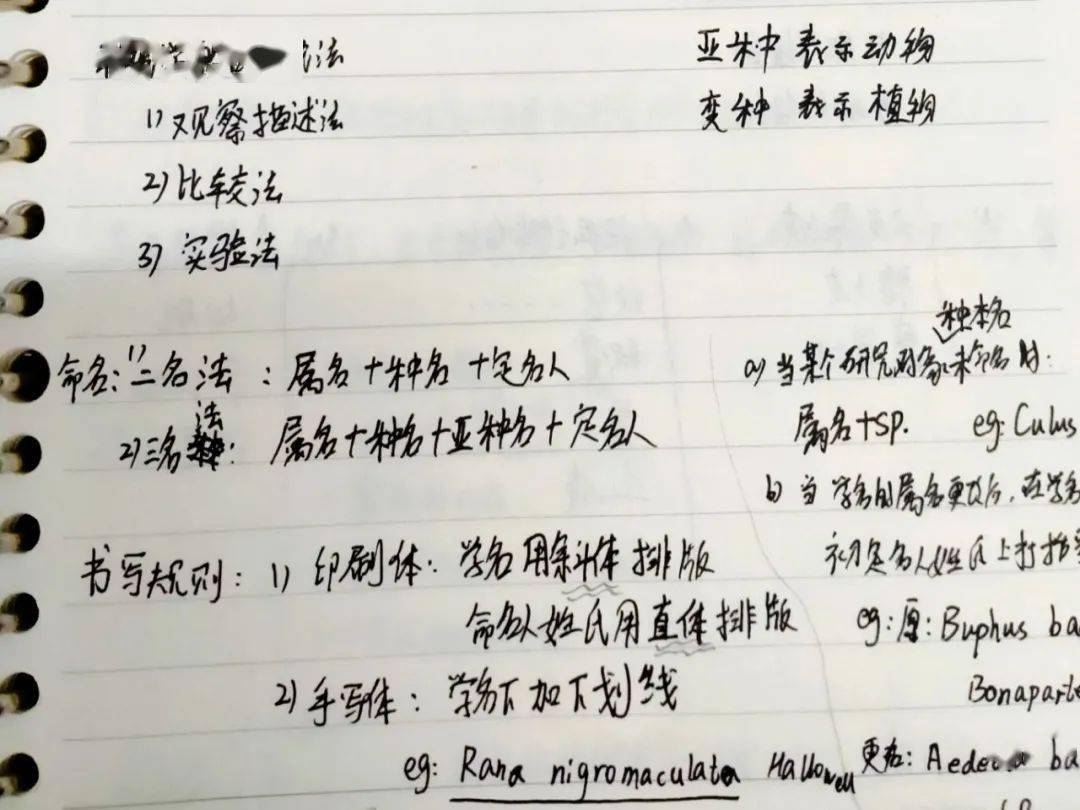 法
1) 观察描述法
2) 比较法
3) 实验法
亚种 表示动物
变种 表示植物
命名: 1) 二名法 : 属名+种名+定名人
2) 三名法: 属名+种名+亚种名+定名人
书写规则: 1) 印刷体: 学名用斜体排版
命名人姓氏用直体排版
2) 手写体: 学名下加下划线
eg: Rana nigromaculata Hallowell
种本名
a) 当某个研究对象未命名时:
属名+sp. eg: Culus
b) 当学名的属名更改后,在学名
初定名人姓氏上打括
eg: 原: Buphus ba
Bonaparte
更名: ba